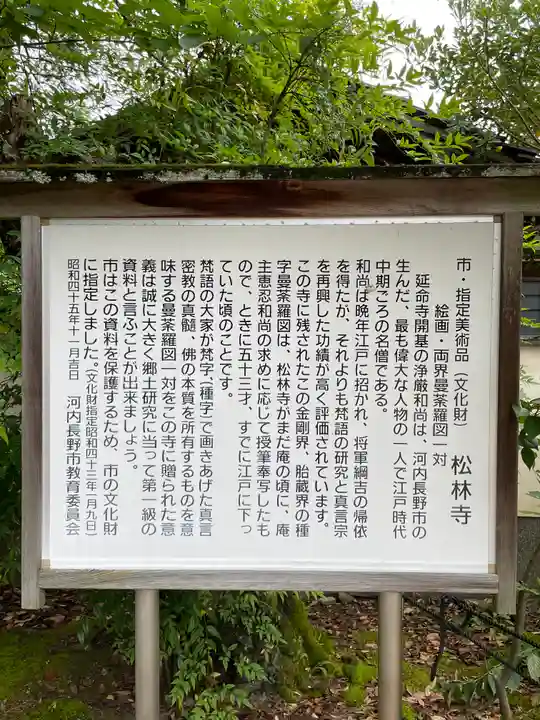 市・指定美術品(文化財)　松林寺
絵画・両界曼荼羅図一対
延命寺開基の浄厳和尚は、河内長野市の
生んだ、最も偉大な人物の一人で江戸時代
中期ごろの名僧である。
和尚は晩年江戸に招かれ、将軍綱吉の帰依
を得たが、それよりも梵語の研究と真言宗
を再興した功績が高く評価されています。
この寺に残されたこの金剛界、胎蔵界の種
字曼荼羅図は、松林寺がまだ庵の頃に、庵
主恵忍和尚の求めに応じて授筆奉写したも
ので、ときに五十三才、すでに江戸に下っ
ていた頃のことです。
梵語の大家が梵字、(種字)で画きあげた真言
密教の真髄、佛の本質を所有するものを意
味する曼荼羅図一対をこの寺に贈られた意
義は誠に大きく郷土研究に当って第一級の
資料と言ふことが出来ましょう。
市はこの資料を保護するため、市の文化財
に指定しました。(文化財指定昭和四十三年一月九日)
昭和四十五年十一月吉日　河内長野市教育委員会